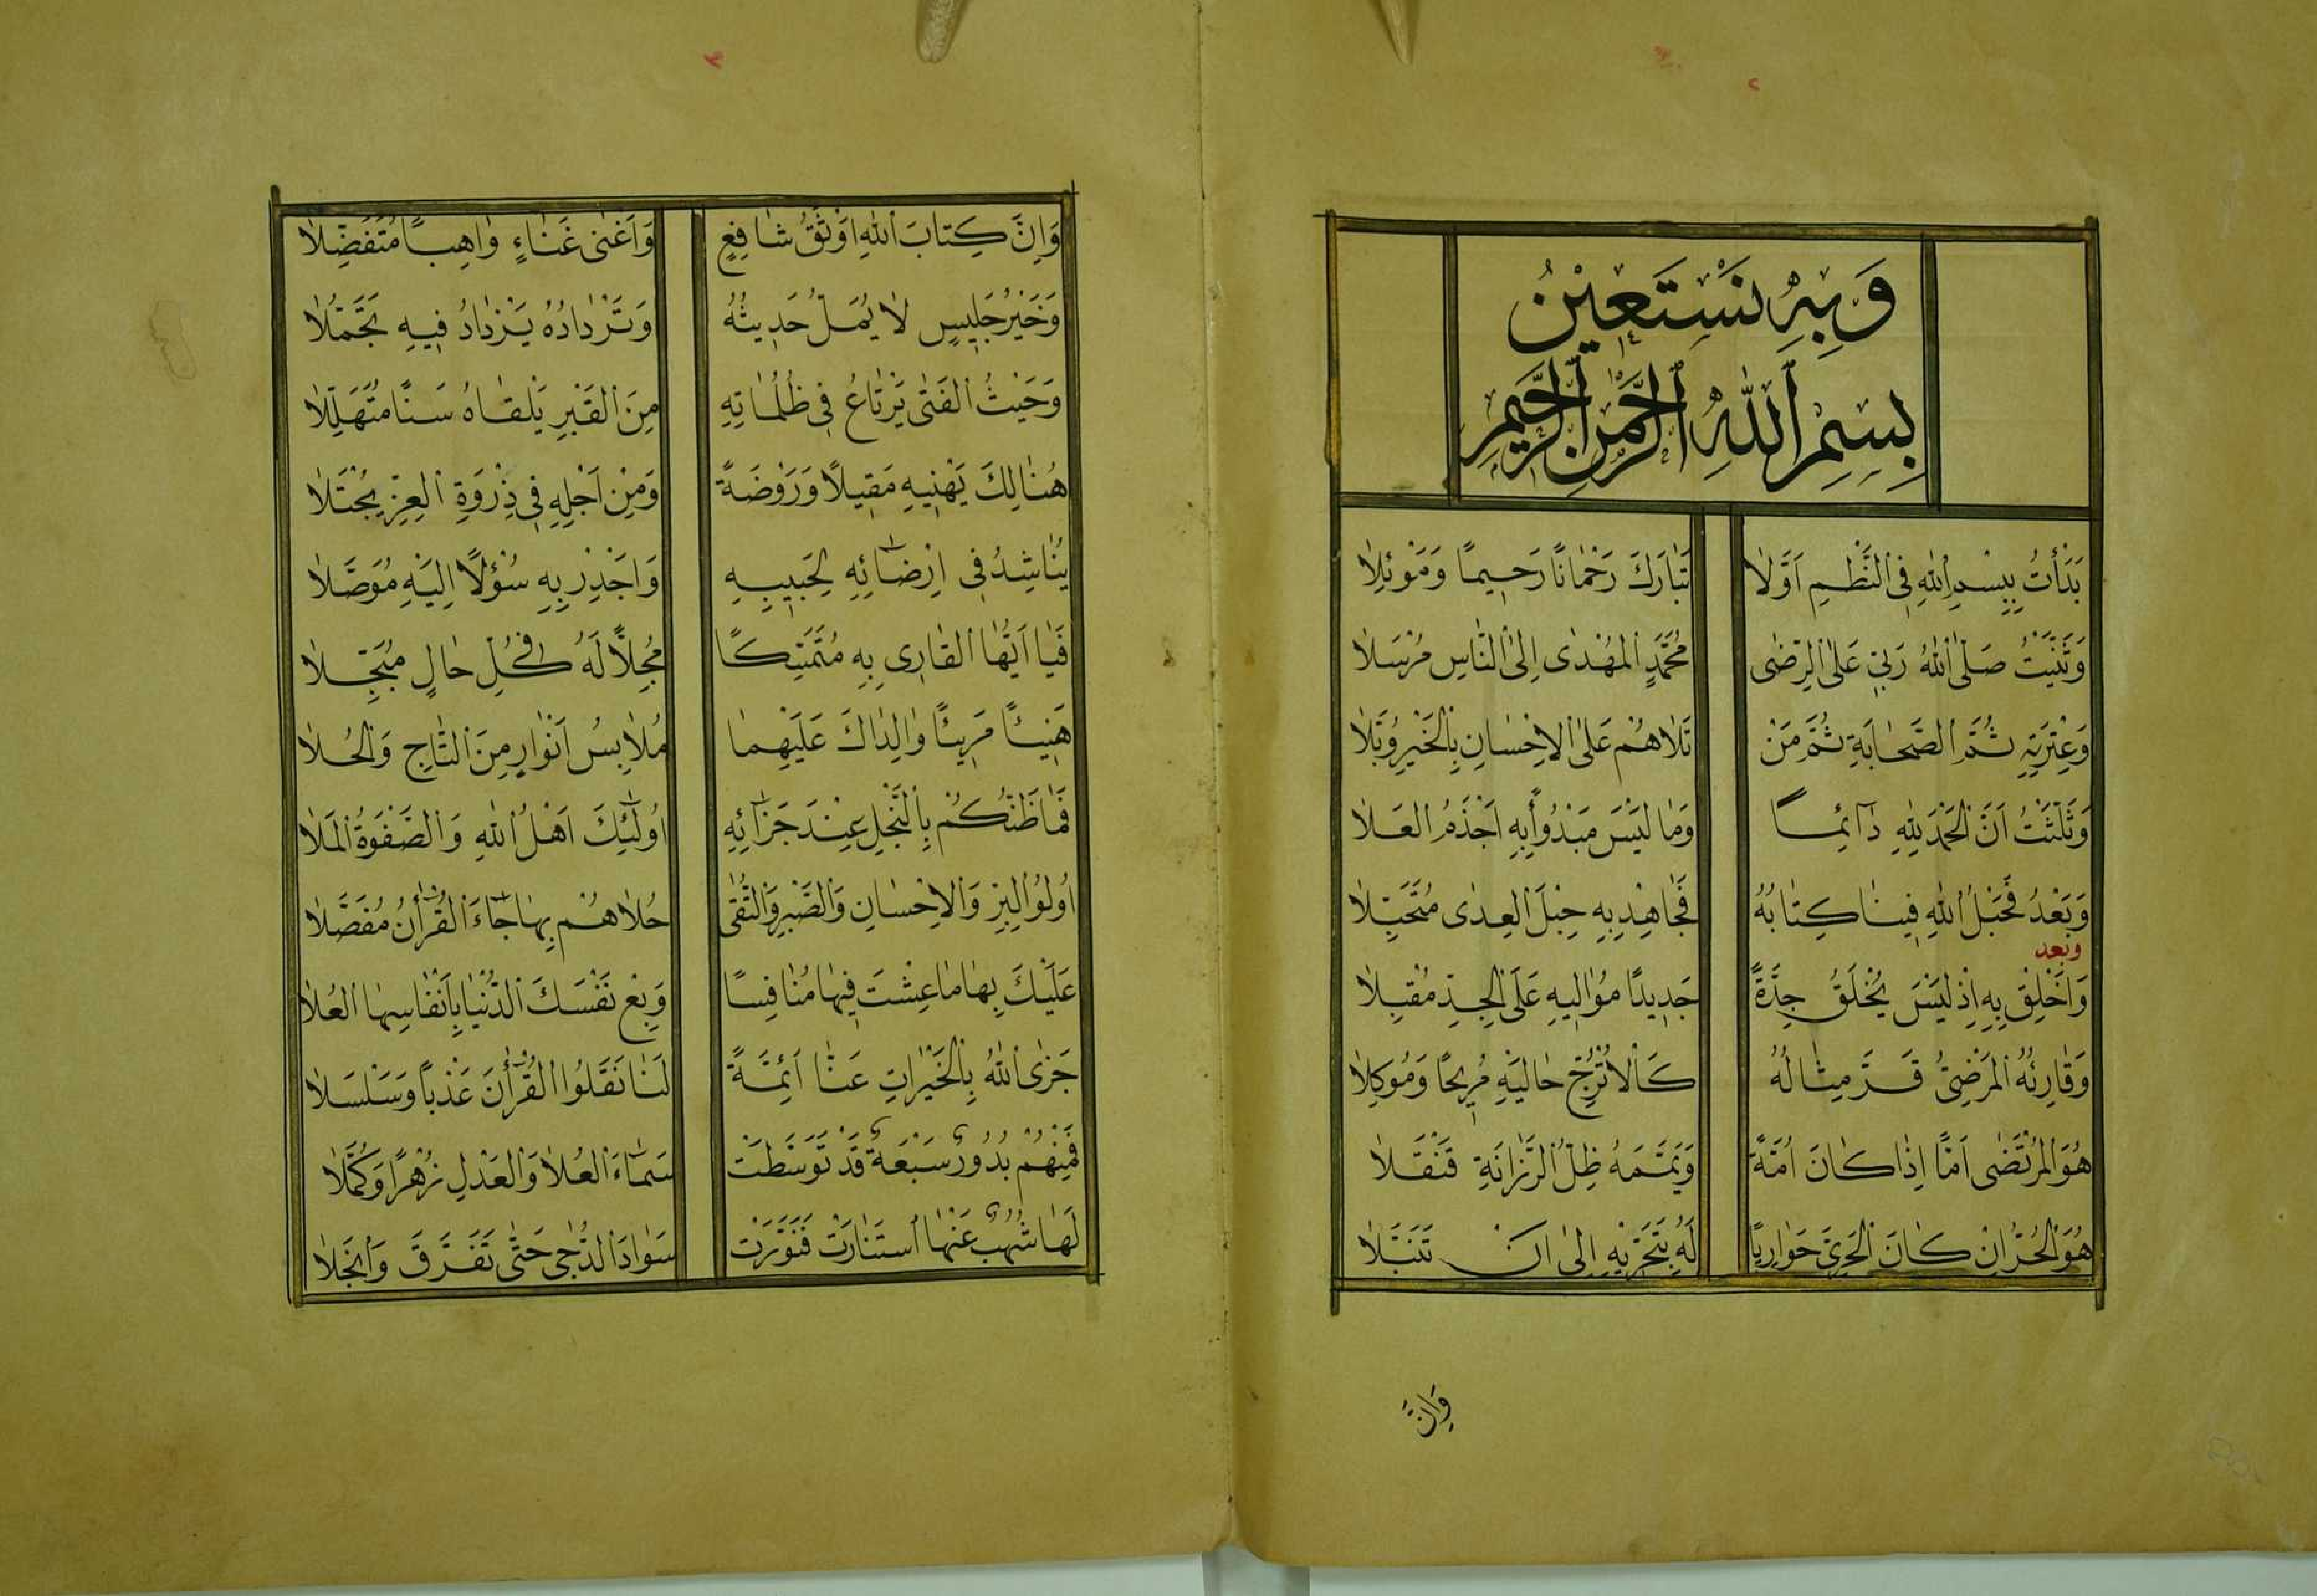 وَبِهِ نَسْتَعِيْنُ
بِسِمِ ٱللّٰهِ ٱلرَّحْمٰنِ ٱلرَّحِيمِ
بَدَأْتُ بِبِسْمِ ٱللّٰهِ فِى ٱلنَّظْمِ اَوَّلاٰ تَبَارَكَ رَحْمَانًا رَحِيمًا وَمَوْئِلاٰ
وَثَنَّيْتُ صَلَّى ٱللّٰهُ رَبِّى عَلَى ٱلرِّضٰى مُحَمَّدٍ ٱلمُهْدٰى اِلَى ٱلنَّاسِ مُرْسَلاٰ
وَعِتْرَتِهِ ثُمَّ ٱلصَّحٰابَةِ ثُمَّ مَنْ تَلاٰهُمْ عَلَى ٱلاِحْسٰانِ بِٱلخَيْرِ وُبَّلاٰ
وَثَلَّثْتُ اَنَّ ٱلحَمْدَ لِلّٰهِ دٰٓائِمًا وَمٰا لَيْسَ مَبْدُوأً بِهِ اَجْذَمُ ٱلعَلاٰ
وَبَعْدُ فَحَبْلُ ٱللّٰهِ فِينٰا كِتٰابُهُ فَجٰاهِدْ بِهِ حِبْلَ ٱلعِدٰى مُتَحَبِّلاٰ
وبعد
وَاَخْلِقْ بِهِ اِذْ لَيْسَ يُخْلَقُ جِدَّةً جَدِيدًا مُوٰالِيهِ عَلَى ٱلجِدِّ مُقْبِلاٰ
وَقٰارِئُهُ ٱلمَرْضِىُّ قَرَّ مِثٰالُهُ كَٱلاُتْرُجِّ حٰالَيْهِ مُرِيحًا وَمُوكِلاٰ
هُوَ ٱلمُرْتَضٰى اَمًّا اِذٰا كٰانَ اُمَّةً وَيَمَّمَهُ ظِلُّ ٱلرَّزٰانَةِ قَنْقَلاٰ
هُوَ ٱلحُرُّ اِنْ كٰانَ ٱلحَرِىَّ حَوٰارِيًّا لَهُ بِتَحَرِّيهِ اِلٰى اَنْ تَنَبَّلاٰ
وَاِنَّ
وَاِنَّ كِتٰابَ ٱللّٰهِ اَوْثَقُ شٰافِعٍ وَاَغْنٰى غَنٰاءٍ وٰاهِبًا مُتَفَضِّلاٰ
وَخَيْرُ جَلِيسٍ لاٰ يُمَلُّ حَدِيثُهُ وَتَرْدٰادُهُ يَزْدٰادُ فِيهِ تَجَمُّلاٰ
وَحَيْثُ ٱلفَتٰى يَرْتٰاعُ فِى ظُلُمٰاتِهِ مِنَ ٱلقَبْرِ يَلْقٰاهُ سَنًا مُتَهَلِّلاٰ
هُنٰالِكَ يَهْنِيهِ مَقِيلاً وَرَوْضَةً وَمِنْ اَجْلِهِ فِى ذِرْوَةِ ٱلعِزِّ يُجْتَلاٰ
يُنٰاشِدُ فِى اِرْضٰٓائِهِ لِحَبِيبِهِ وَاَجْدِرْ بِهِ سُؤْلاً اِلَيْهِ مُوَصَّلاٰ
فَيٰا اَيُّهٰا ٱلقٰارِى بِهِ مُتَمَسِّكًا مُجِلاًّ لَهُ فِى كُلِّ حٰالٍ مُبَجِّلاٰ
هَنِيئًا مَرِيئًا وٰالِدٰاكَ عَلَيْهِمٰا مُلاٰبِسُ اَنْوٰارٍ مِنَ ٱلتّٰاجِ وَٱلحُلاٰ
فَمٰا ظَنُّكُمْ بِٱلنَّجْلِ عِنْدَ جَزٰٓائِهِ اُولٰٓئِكَ اَهْلُ ٱللّٰهِ وَٱلصَّفْوَةُ ٱلمَلاٰ
اُولُو ٱلبِرِّ وَٱلاِحْسٰانِ وَٱلصَّبْرِ وَٱلتُّقٰى حُلاٰهُمْ بِهٰا جٰٓاءَ ٱلقُرْأٰنُ مُفَصَّلاٰ
عَلَيْكَ بِهٰا مٰا عِشْتَ فِيهٰا مُنٰافِسًا وَبِعْ نَفْسَكَ ٱلدُّنْيٰا بِاَنْفٰاسِهٰا ٱلعُلاٰ
جَزَى ٱللّٰهُ بِٱلخَيْرٰاتِ عَنّٰا اَئِمَّةً لَنٰا نَقَلُوا ٱلقُرْأٰنَ عَذْبًا وَسَلْسَلاٰ
فَمِنْهُمْ بُدُورٌ سَبْعَةٌ قَدْ تَوَسَّطَتْ سَمٰٓاءَ ٱلعُلاٰ وَٱلعَدْلِ زُهْرًا وَكُمَّلاٰ
لَهٰا شُهُبٌ عَنْهٰا ٱسْتَنٰارَتْ فَنَوَّرَتْ سَوٰادَ ٱلدُّجٰى حَتّٰى تَفَرَّقَ وَٱنْجَلاٰ